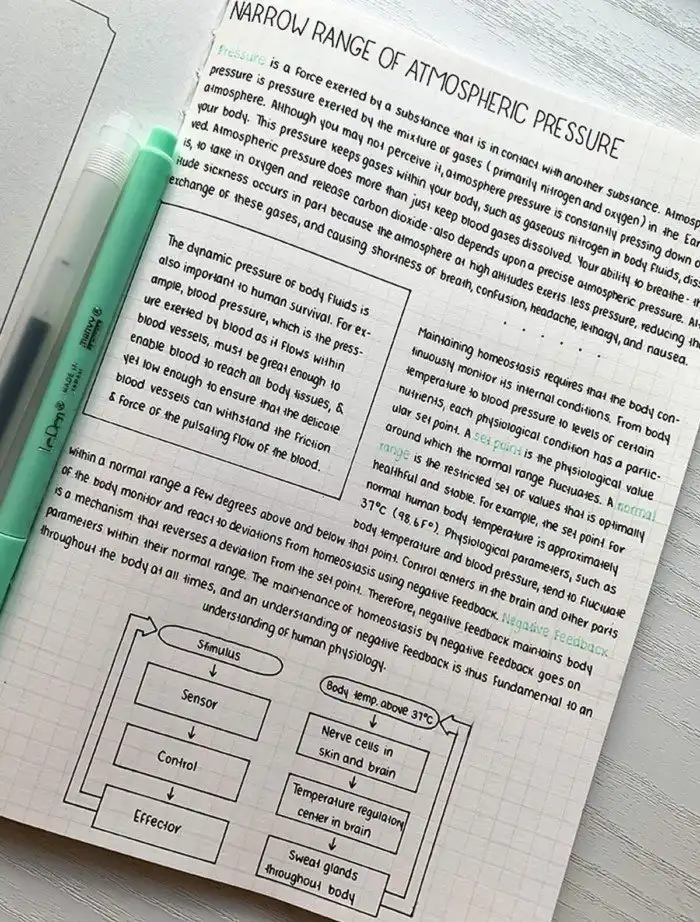 NARROW RANGE OF ATMOSPHERIC PRESSURE
Pressure is a force exerted by a substance that is in contact with another substance. Atmosp
pressure is pressure exerted by the mixture of gases (primarily nitrogen and oxygen) in the Ea
atmosphere. Although you may not perceive it, atmosphere pressure is constantly pressing down o
your body. This pressure keeps gases within your body, such as gaseous nitrogen in body fluids, dis
ved. Atmospheric pressure does more than just keep blood gases dissolved. Your ability to breathe - th
is, to take in oxygen and release carbon dioxide - also depends upon a precise atmospheric pressure. Al
titude sickness occurs in part because the atmosphere at high altitudes exerts less pressure, reducing the
exchange of these gases, and causing shortness of breath, confusion, headache, lethargy, and nausea.
The dynamic pressure of body fluids is
also important to human survival. For ex-
ample, blood pressure, which is the press-
ure exerted by blood as it flows within
blood vessels, must be great enough to
enable blood to reach all body tissues, &
yet low enough to ensure that the delicate
blood vessels can withstand the friction
& force of the pulsating flow of the blood.
Maintaining homeostasis requires that the body con-
tinuously monitor its internal conditions. From body
temperature to blood pressure to levels of certain
nutrients, each physiological condition has a partic-
ular set point. A set point is the physiological value
around which the normal range fluctuates. A normal
range is the restricted set of values that is optimally
healthful and stable. For example, the set point for
normal human body temperature is approximately
37°C (98.6F°). Physiological parameters, such as
body temperature and blood pressure, tend to fluctuate
within a normal range a few degrees above and below that point. Control centers in the brain and other parts
of the body monitor and react to deviations from homeostasis using negative feedback. Negative Feedback
is a mechanism that reverses a deviation from the set point. Therefore, negative feedback maintains body
parameters within their normal range. The maintenance of homeostasis by negative feedback goes on
throughout the body at all times, and an understanding of negative feedback is thus fundamental to an
understanding of human physiology.
Stimulus
Sensor
Control
Effector
Body temp. above 37°C
Nerve cells in
skin and brain
Temperature regulatory
center in brain
Sweat glands
throughout body
LePen®
MADE IN
JAPAN